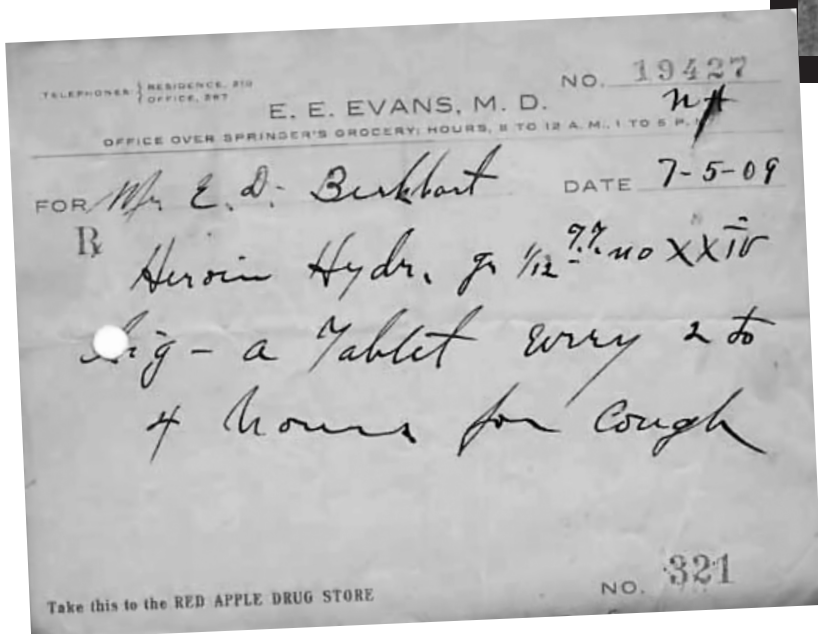 TELEPHONES { RESIDENCE, 210
OFFICE, 287
NO. 19427
E. E. EVANS, M. D.
OFFICE OVER SPRINGER'S GROCERY; HOURS, 8 TO 12 A. M., 1 TO 5 P.
FOR Mr E. D. Burkhart
DATE 7-5-09
℞
Heroin Hydr. gr 1/12 T.T. no XXIV
Sig - a Tablet every 2 to
4 hours for Cough
Take this to the RED APPLE DRUG STORE
NO. 321